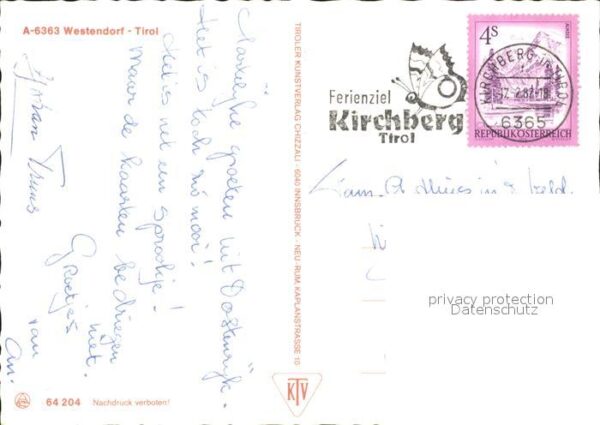 A-6363 Westendorf - Tirol
Hartelijke groeten uit Oostenrijk.
Het is toch zo mooi!
Het is net een sprookje!
Maar de kaarten bedriegen
niet.
Groetjes
van
An.
TIROLER KUNSTVERLAG CHIZZALI · 6040 INNSBRUCK · NEU-RUM, KAPLANSTRASSE 10
KTV
64 204 Nachdruck verboten!
Ferienziel
Kirchberg
Tirol
4S
KIRCHBERG IN TIROL
6365
REPUBLIK ÖSTERREICH
Fam.
privacy protection
Datenschutz